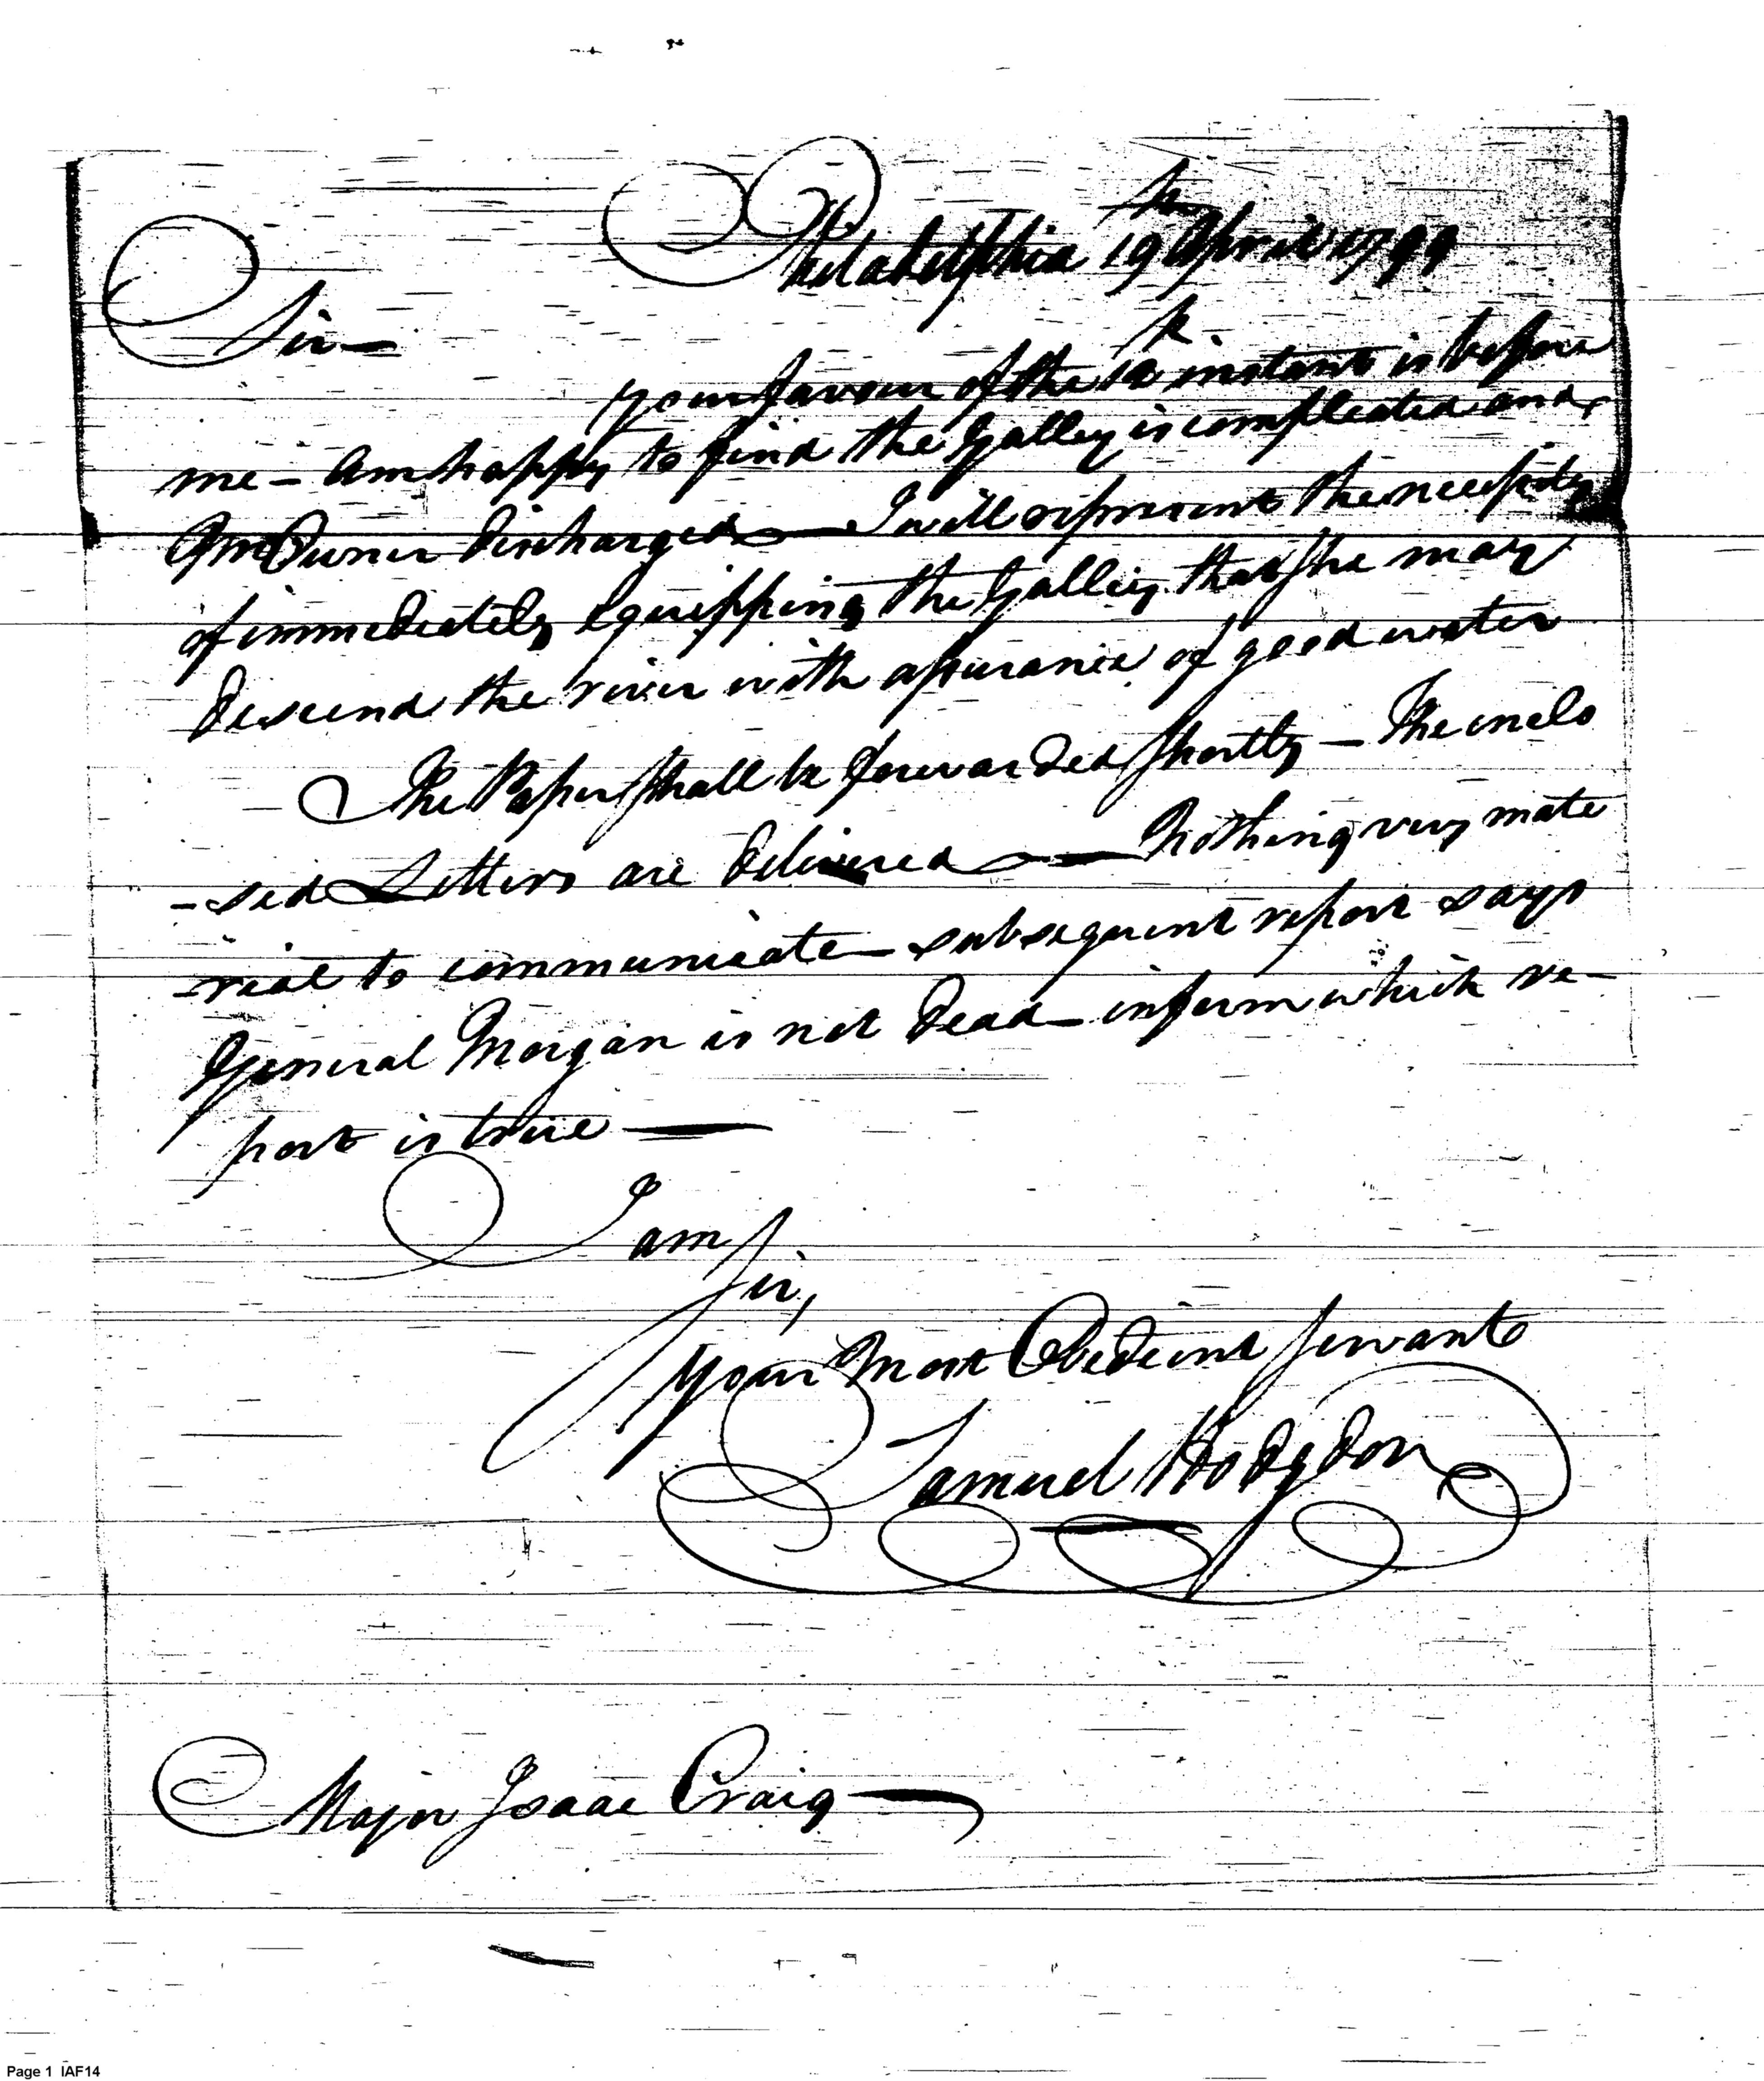 Philadelphia 19th April 1799
Sir—
your favour of the 12th instant is before
me — Am happy to find the Galley is compleated and
discharged — I will represent the necessity
of immediately equipping the Galley that she may
descend the river with assurance of good water
The Paper shall be forwarded shortly — The inclo
-sed Letters are delivered — Nothing very mate
-rial to communicate — subsequent report says
General Morgan is not dead — inform which re-
port is true —
I am
Sir,
your most Obedient servant
Samuel Hodgdon
Major Isaac Craig —
Page 1 IAF14